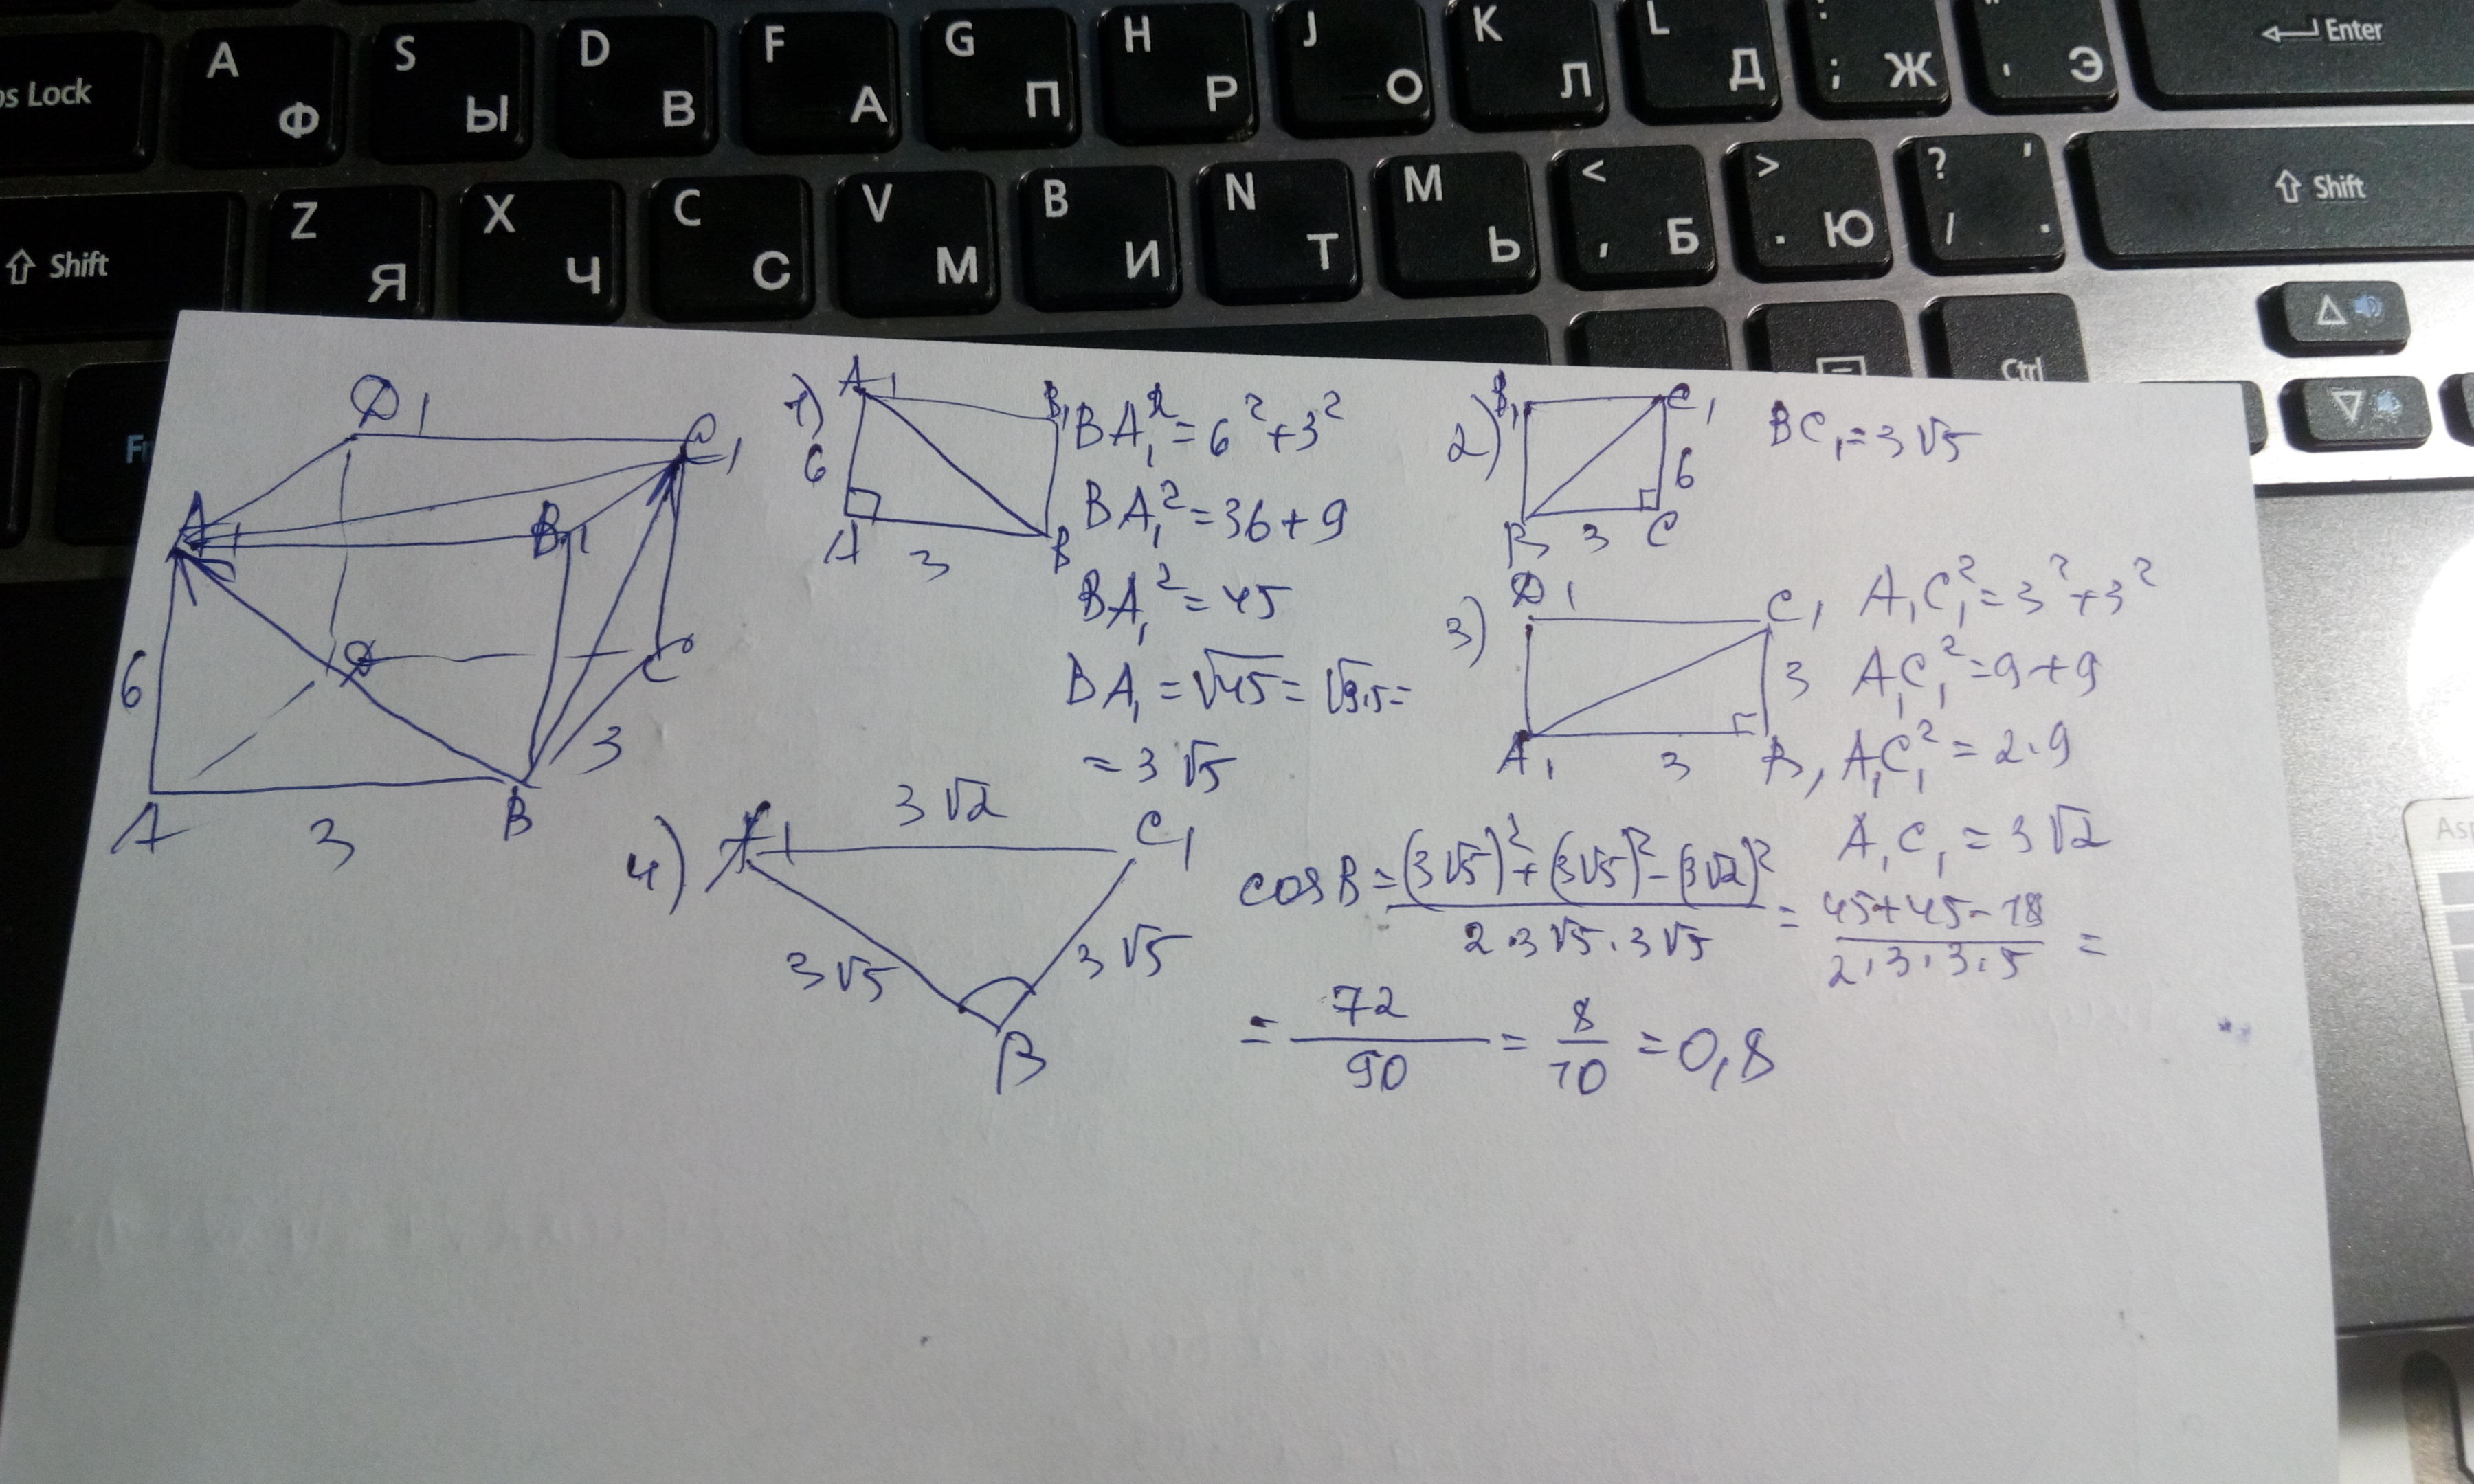 A Ф S Ы D В F А G П H Р J О K Л L Д : ; Ж " ' Э Enter
Lock
Shift Z Я X Ч C С V М B И N Т M Ь < , Б > . Ю ? / ' . Shift
Ctrl
D1 C1
A1 B1
6
D C
3
A 3 B
1) A1 B1
6
A 3 B
BA1² = 6² + 3²
BA1² = 36 + 9
BA1² = 45
BA1 = √45 = √9·5 =
= 3√5
2) B1 C1
6
B 3 C
BC1 = 3√5
3) D1 C1
3
A1 3 B1
A1C1² = 3² + 3²
A1C1² = 9 + 9
A1C1² = 2·9
A1C1 = 3√2
4) A1 3√2 C1
3√5 3√5
B
cos B = (3√5)² + (3√5)² - (3√2)² / 2·3√5·3√5 = 45+45-18 / 2·3·3·5 =
= 72/90 = 8/10 = 0,8